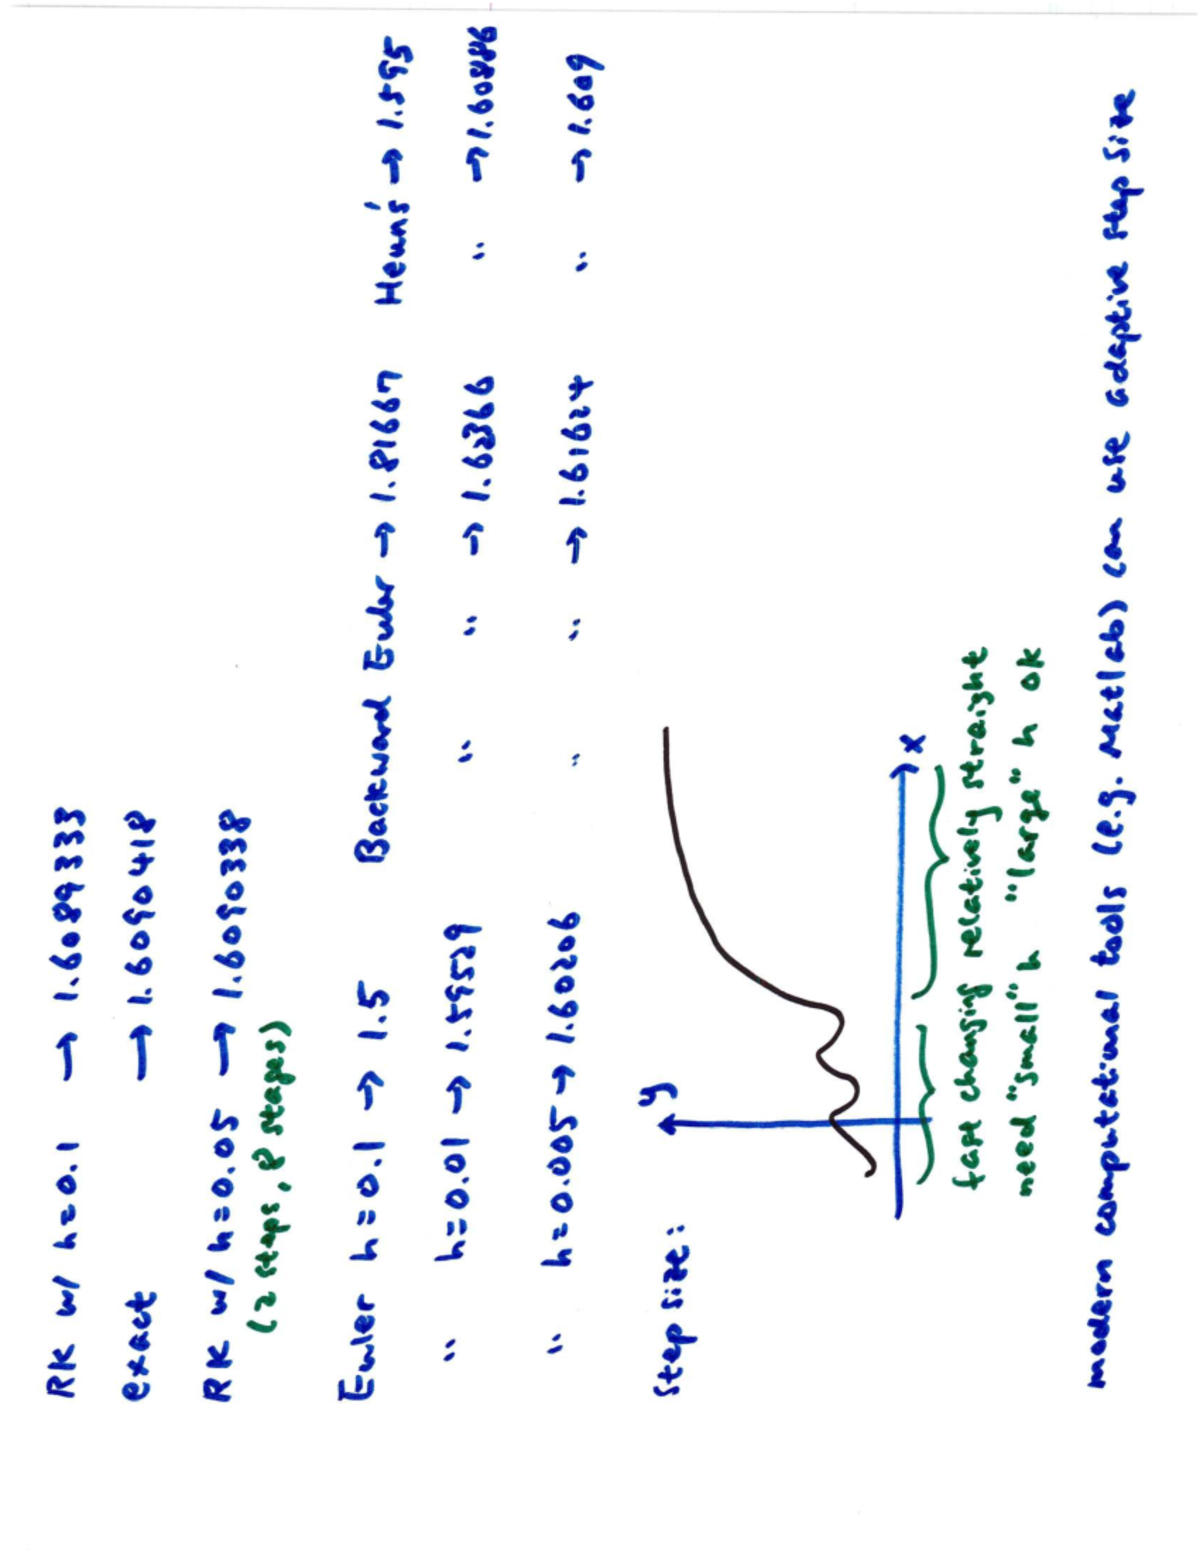 RK w/ h=0.1 → 1.6089333
exact → 1.6090418
RK w/ h=0.05 → 1.6090338
(2 steps, 8 stages)
Euler h=0.1 → 1.5 Backward Euler → 1.81667 Heun's → 1.595
" h=0.01 → 1.59529 " " → 1.62366 " → 1.60886
" h=0.005 → 1.60206 " " → 1.61624 " → 1.609
Step size:
y
x
fast changing relatively straight
need "small" h "large" h ok
modern computational tools (e.g. Matlab) can use adaptive step size